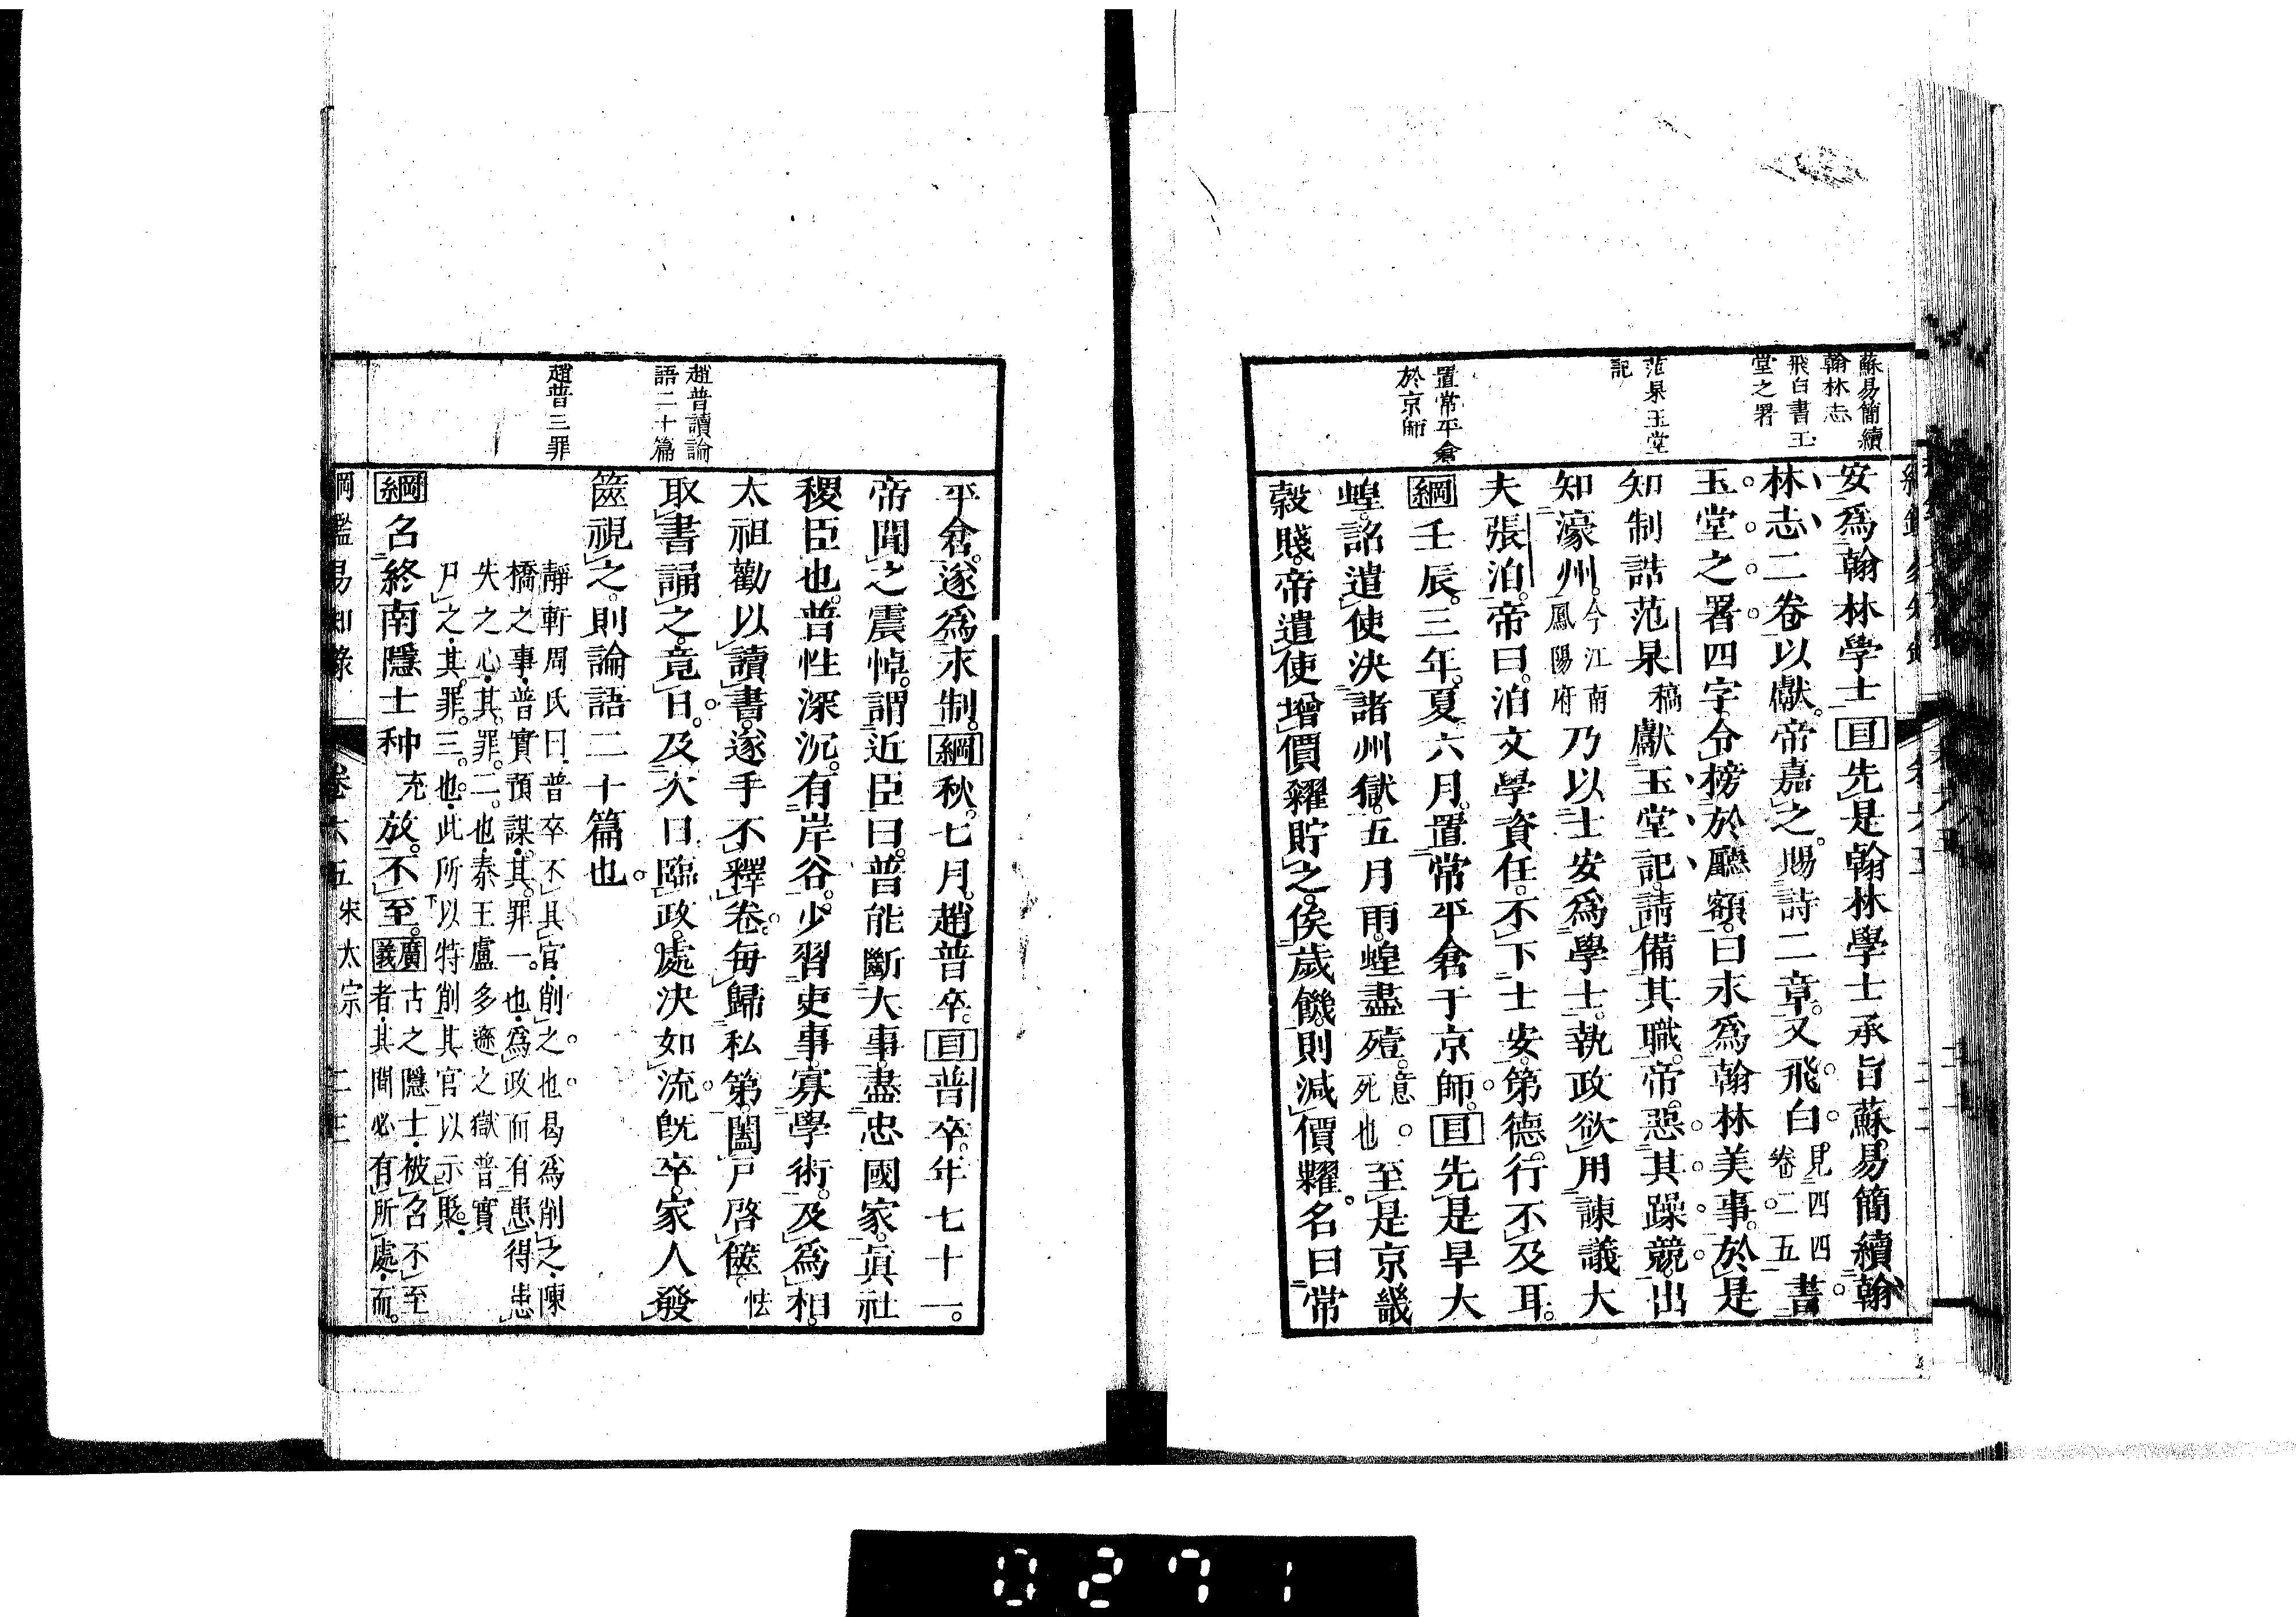 蘇易簡續
翰林志
飛白書玉
堂之署
范杲玉堂
記
置常平倉
於京師
安爲翰林學士目先是翰林學士承旨蘇易簡續翰
林志二卷以獻帝嘉之賜詩二章又飛白見四四卷二五書
玉堂之署四字令榜於廳額曰永爲翰林美事於是
知制誥范杲稿獻玉堂記請備其職帝惡其躁競出
知濠州今江南鳳陽府乃以士安爲學士執政欲用諫議大
夫張洎帝曰洎文學資任不下士安第德行不及耳
綱壬辰三年夏六月置常平倉于京師目先是旱大
蝗詔遣使決諸州獄五月雨蝗盡殪意死也至是京畿
穀賤帝遣使增價糴貯之俟歲饑則減價糶名曰常
趙普讀論
語二十篇
趙普三罪
平倉遂爲永制綱秋七月趙普卒目普卒年七十一
帝聞之震悼謂近臣曰普能斷大事盡忠國家眞社
稷臣也普性深沉有岸谷少習吏事寡學術及爲相
太祖勸以讀書遂手不釋卷每歸私第闔戶啓篋怯
取書誦之竟日及次日臨政處決如流旣卒家人發
篋視之則論語二十篇也
靜軒周氏曰普卒不具官削之也曷爲削之陳
橋之事普實預謀其罪一也爲政而有患得患
失之心其罪二也秦王盧多遜之獄普實
尸之其罪三也此所以特削其官以示貶
綱召終南隱士种充放不至廣義古之隱士被召不至
者其間必有所處而
綱鑑易知錄 卷六五 宋太宗 二三
0271